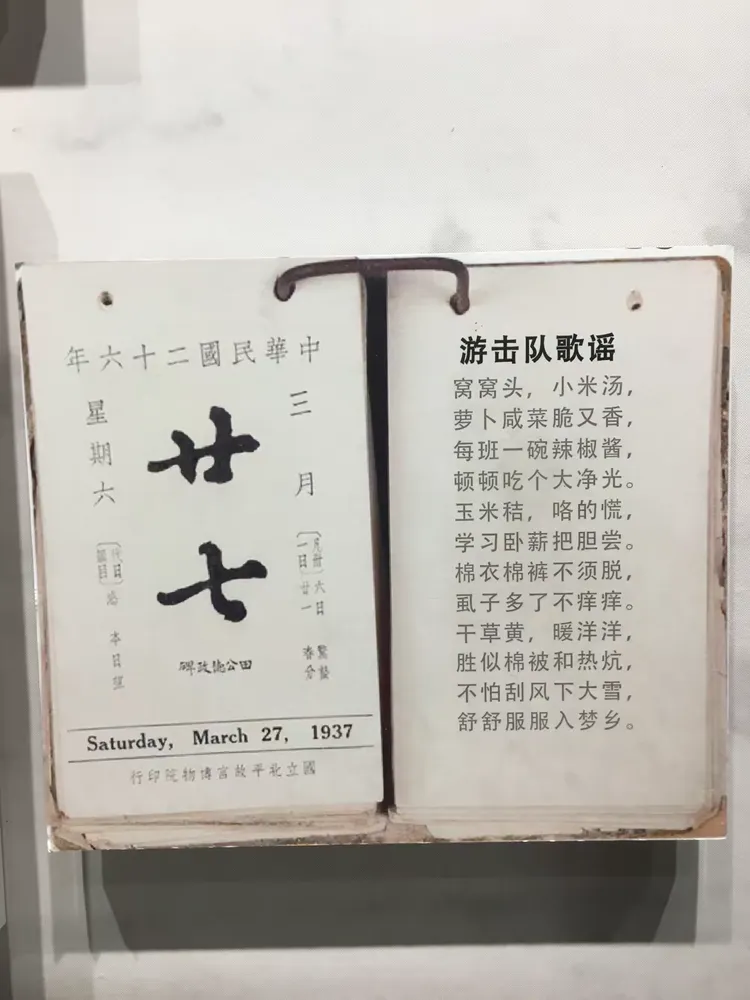 中華民國二十六年
三月
廿七
星期六
六日 驚蟄
廿一 春分
本日望
田公德政碑
Saturday, March 27, 1937
國立北平故宮博物院印行
游击队歌谣
窝窝头，小米汤，
萝卜咸菜脆又香，
每班一碗辣椒酱，
顿顿吃个大净光。
玉米秸，咯的慌，
学习卧薪把胆尝。
棉衣棉裤不须脱，
虱子多了不痒痒。
干草黄，暖洋洋，
胜似棉被和热炕，
不怕刮风下大雪，
舒舒服服入梦乡。